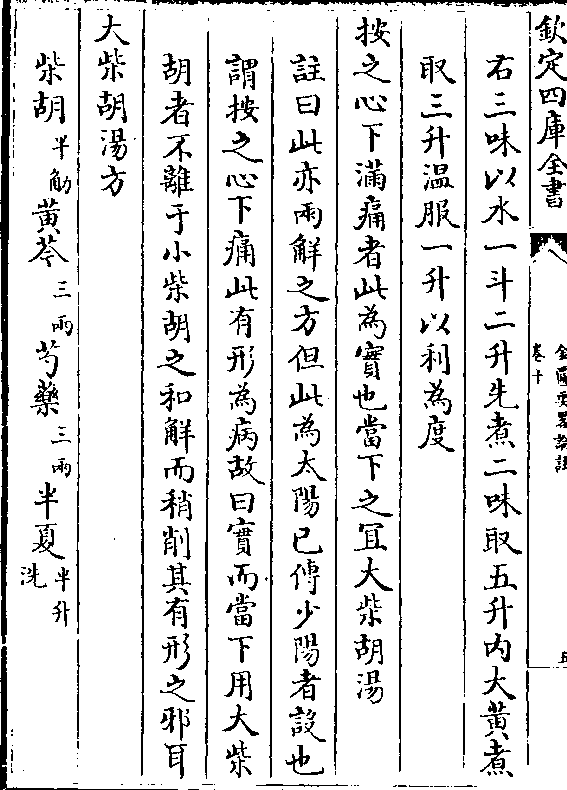 欽定四庫全書
金匱要畧論註
卷十
右三味以水一斗二升先煮二味取五升内大黄煮
取三升溫服一升以利為度
按之心下滿痛者此為實也當下之宜大柴胡湯
註曰此亦兩解之方但此為太陽已傳少陽者設也
謂按之心下痛此有形為病故曰實而當下用大柴
胡者不離于小柴胡之和解而稍削其有形之邪耳
大柴胡湯方
柴胡半觔 黄芩三兩 芍藥三兩 半夏半升洗